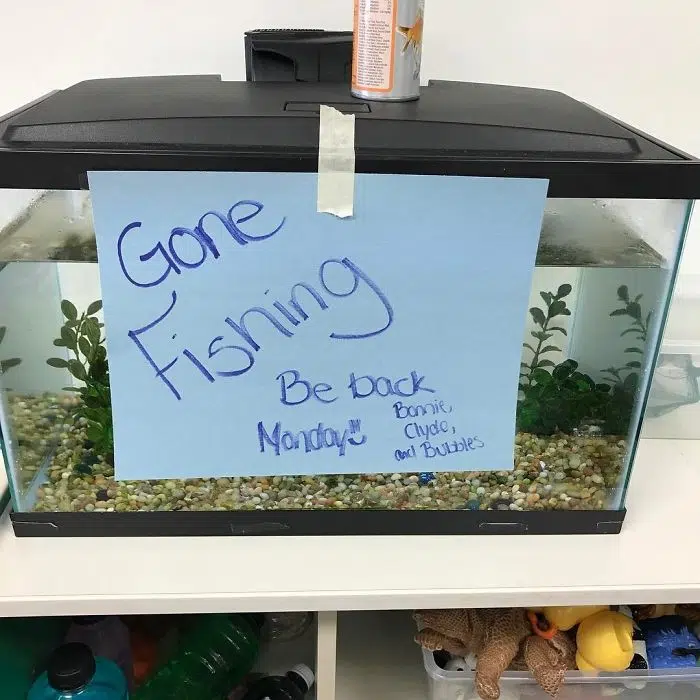 Gone
Fishing
Be back
Monday!!!
Bonnie,
Clyde,
and Bubbles